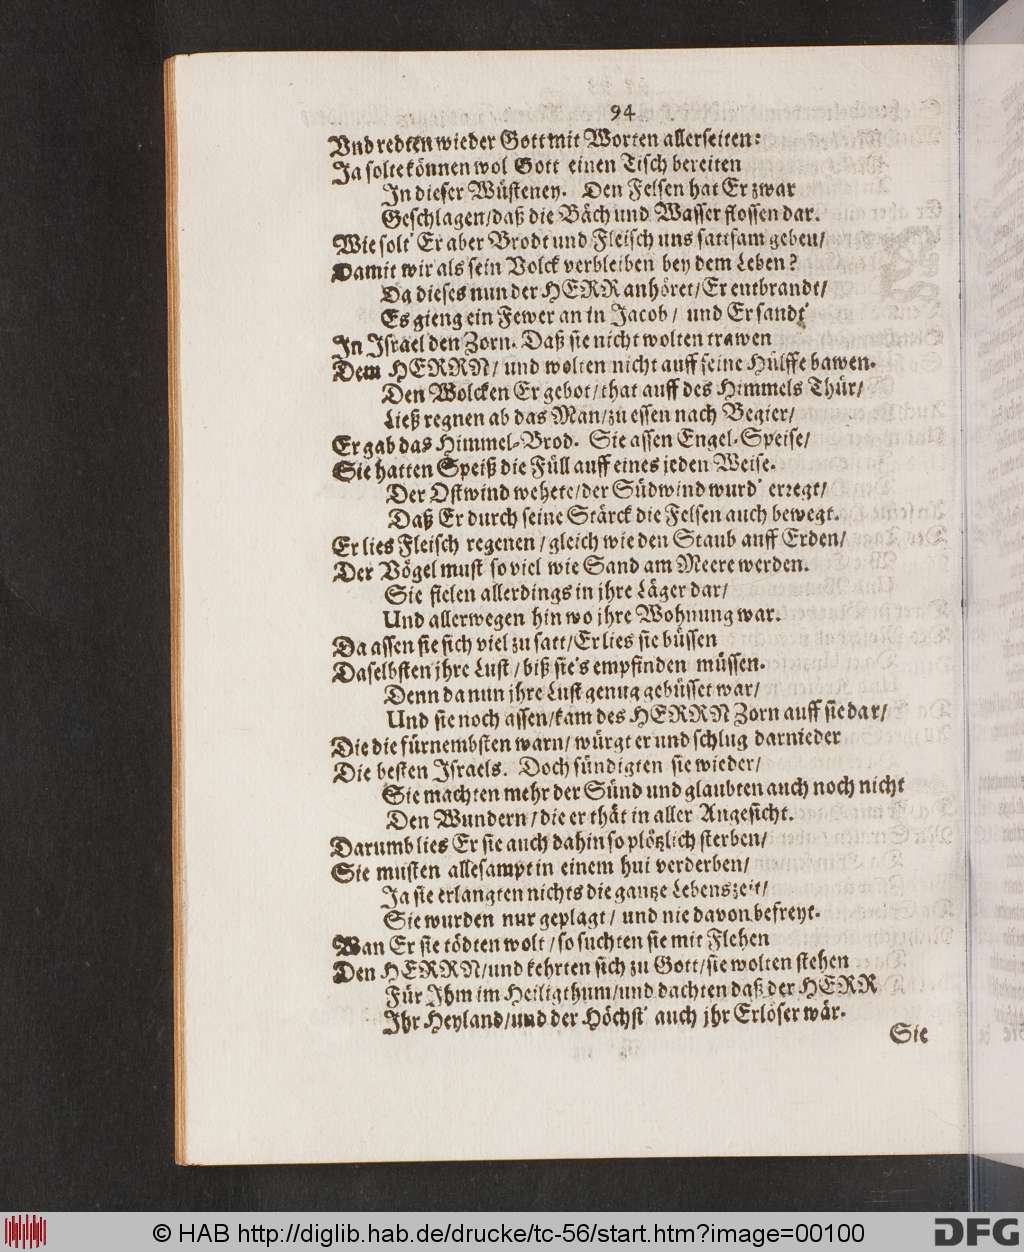 94
Vnd redten wieder Gott mit Worten allerseiten:
Ja solte können wol Gott einen Tisch bereiten
In dieser Wüsteney. Den Felsen hat Er zwar
Geschlagen/daß die Bäch und Wasser flossen dar.
Wie solt' Er aber Brodt und Fleisch uns sattsam geben/
Damit wir als sein Volck verbleiben bey dem Leben?
Da dieses nun der HERR anhöret/Er entbrandt/
Es gieng ein Fewer an in Jacob/ und Er sandt'
In Israel den Zorn. Daß sie nicht wolten trawen
Dem HERRN/ und wolten nicht auff seine Hülffe bawen.
Den Wolcken Er gebot/that auff des Himmels Thür/
Ließ regnen ab das Man/zu essen nach Begier/
Er gab das Himmel-Brod. Sie assen Engel-Speise/
Sie hatten Speiß die Füll auff eines jeden Weise.
Der Ostwind wehete/der Südwind wurd' erregt/
Daß Er durch seine Stärck die Felsen auch bewegt.
Er lies Fleisch regenen/gleich wie den Staub auff Erden/
Der Vögel must so viel wie Sand am Meere werden.
Sie fielen allerdings in jhre Läger dar/
Und allerwegen hin wo jhre Wohnung war.
Da assen sie sich viel zu satt/Er lies sie büssen
Daselbsten jhre Lust/biß sie's empfinden müssen.
Denn da nun jhre Lust genug gebüsset war/
Und sie noch assen/kam des HERRN Zorn auff sie dar/
Die die fürnembsten warn/würgt er und schlug darnieder
Die besten Israels. Doch sündigten sie wieder/
Sie machten mehr der Sünd und glaubten auch noch nicht
Den Wundern/die er thät in aller Angesicht.
Darumb lies Er sie auch dahin so plötzlich sterben/
Sie musten allesampt in einem hui verderben/
Ja sie erlangten nichts die gantze Lebenszeit/
Sie wurden nur geplagt/ und nie davon befreyt.
Wan Er sie tödten wolt/so suchten sie mit Flehen
Den HERRN/und kehrten sich zu Gott/sie wolten stehen
Für Ihm im Heiligthum/und dachten daß der HERR
Ihr Heyland/und der Höchst' auch jhr Erlöser wär.
Sie
© HAB http://diglib.hab.de/drucke/tc-56/start.htm?image=00100
DFG